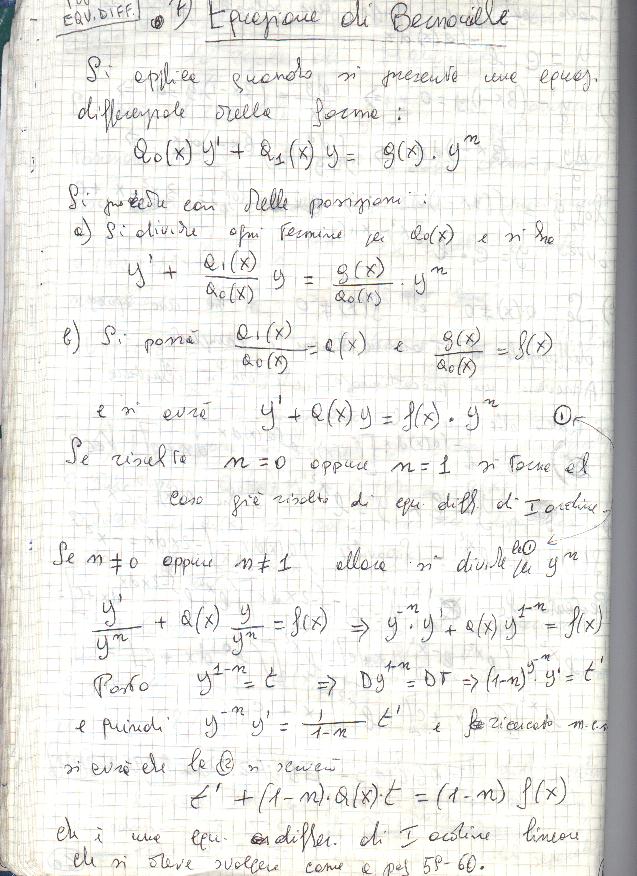 EQU. DIFF. 7) Equazione di Bernouille
Si applica quando si presenta una equaz.
differenziale della forma:
a₀(x) y' + a₁(x) y = g(x) · yⁿ
Si procede con delle posizioni:
a) Si divide ogni termine per a₀(x) e si ha
y' + a₁(x)/a₀(x) y = g(x)/a₀(x) · yⁿ
b) Si porrà a₁(x)/a₀(x) = a(x) e g(x)/a₀(x) = f(x)
e si avrà y' + a(x) y = f(x) · yⁿ ①
Se risulta n = 0 oppure n = 1 si torna al
caso già risolto di equ. diff. di I ordine.
Se n ≠ 0 oppure n ≠ 1 allora si divide la ① per yⁿ
y'/yⁿ + a(x) y/yⁿ = f(x) ⇒ y⁻ⁿ · y' + a(x) y¹⁻ⁿ = f(x)
Posto y¹⁻ⁿ = t ⇒ Dy¹⁻ⁿ = Dt ⇒ (1-n) y⁻ⁿ · y' = t'
e quindi y⁻ⁿ y' = 1/(1-n) t' e
si avrà che la ② si scriverà
t' + (1-n) · a(x) · t = (1-n) f(x)
che è una equ. differ. di I ordine lineare
che si deve svolgere come a pag 59-60.